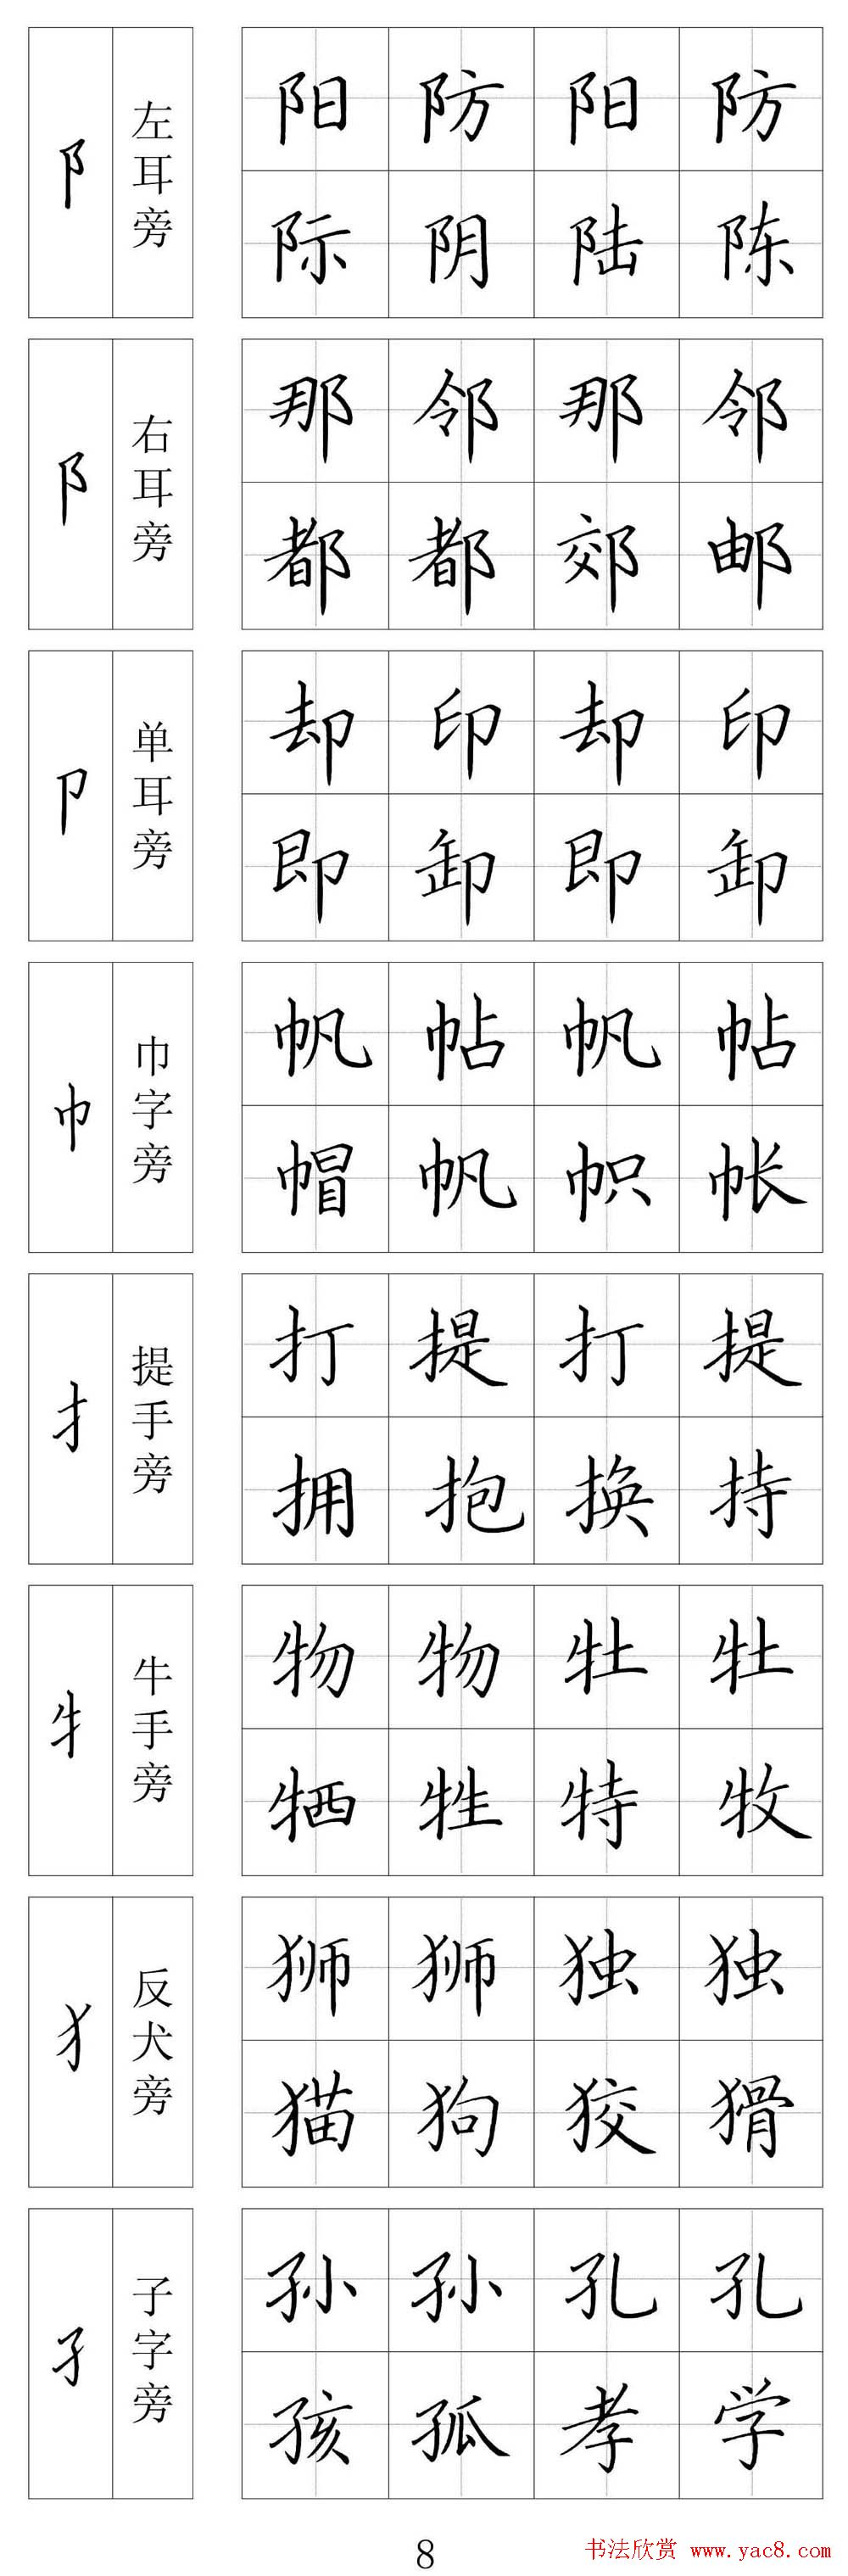 阝 左耳旁 阳 防 阳 防
际 阴 陆 陈
阝 右耳旁 那 邻 那 邻
都 都 郊 邮
卩 单耳旁 却 印 却 印
即 卸 即 卸
巾 巾字旁 帆 帖 帆 帖
帽 帆 帜 帐
扌 提手旁 打 提 打 提
拥 抱 换 持
牜 牛手旁 物 物 牡 牡
牺 牲 特 牧
犭 反犬旁 狮 狮 独 独
猫 狗 狡 猾
孑 子字旁 孙 孙 孔 孔
孩 孤 孝 学
8
书法欣赏 www.yac8.com